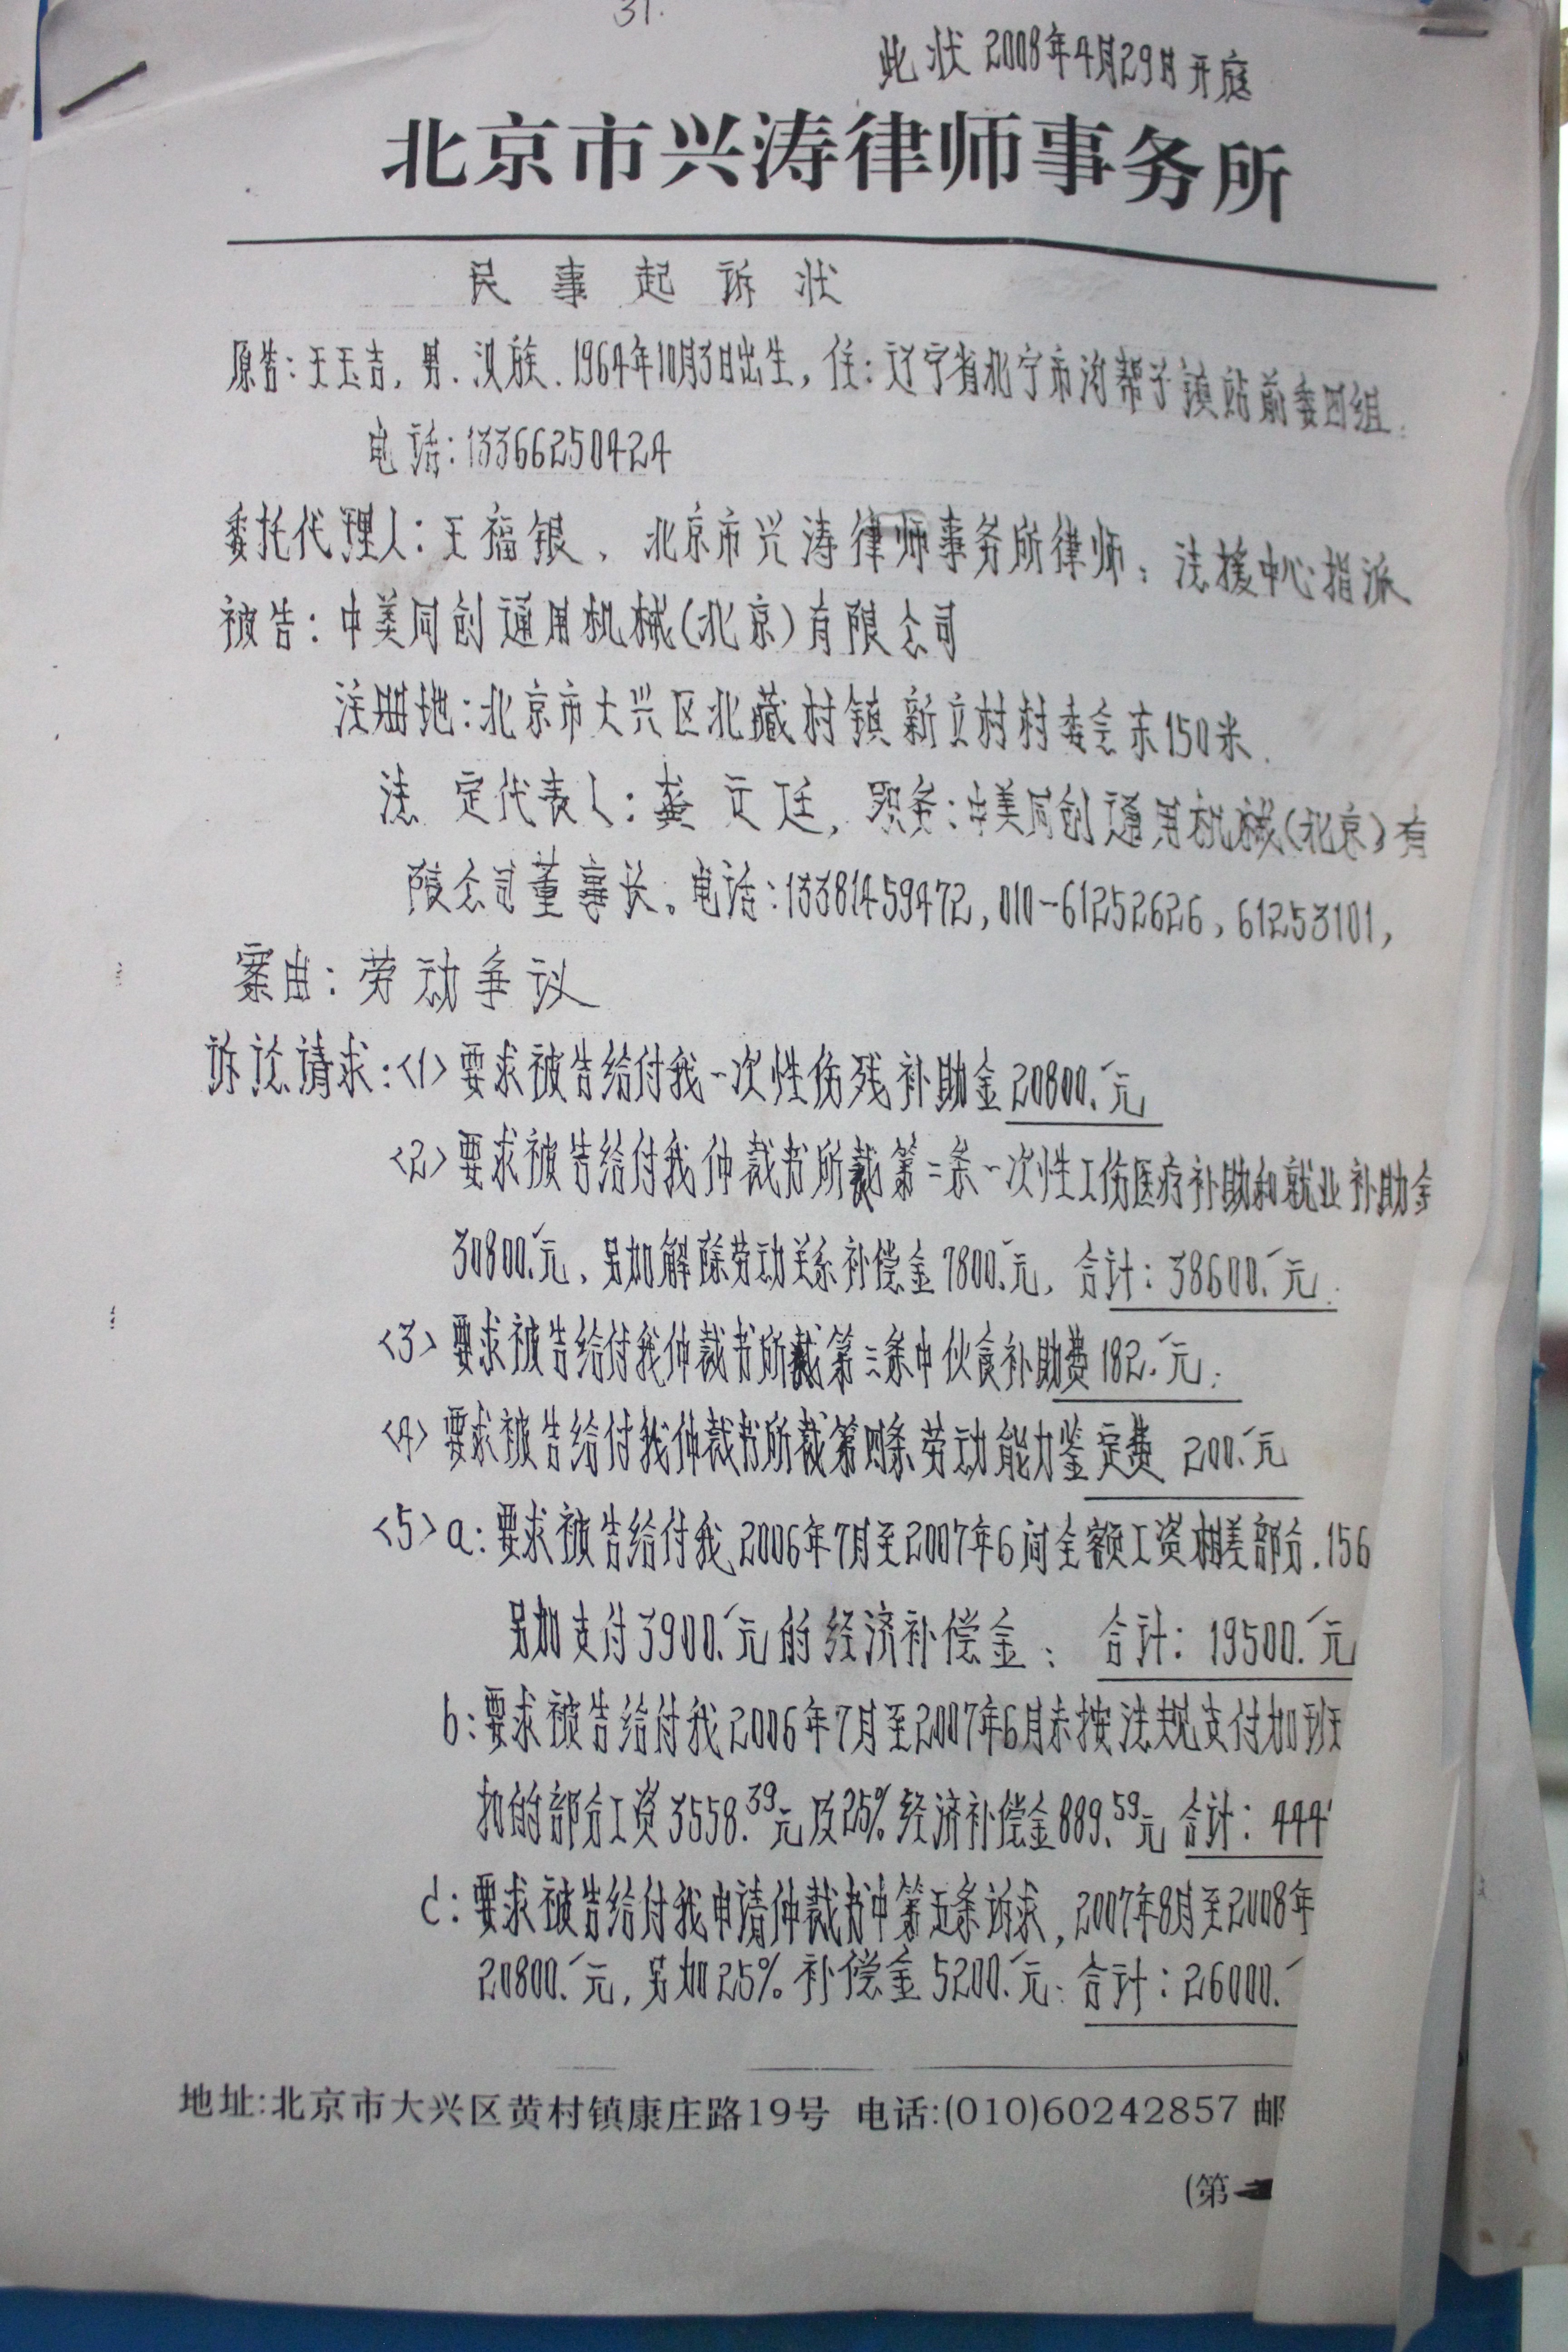 31.
此状2008年4月29日开庭
北京市兴涛律师事务所
民事起诉状
原告:王玉吉,男、汉族、1964年10月3日出生,住:辽宁省北宁市沟帮子镇站前委四组.
电话:13366250424
委托代理人:王福银、北京市兴涛律师事务所律师;法援中心指派
被告:中美同创通用机械(北京)有限公司
注册地:北京市大兴区北藏村镇新立村村委会东150米.
法定代表人:龚立廷,职务:中美同创通用机械(北京)有
限公司董事长。电话:13381459472,010-61252626,61253101,
案由:劳动争议
诉讼请求:<1>要求被告给付我一次性伤残补助金20800.元
<2>要求被告给付我仲裁书所裁第二条一次性工伤医疗补助和就业补助金
30800.元、另加解除劳动关系补偿金7800.元,合计:38600.元.
<3>要求被告给付我仲裁书所裁第三条中伙食补助费182.元;
<4>要求被告给付我仲裁书所裁第四条劳动能力鉴定费200.元
<5>a:要求被告给付我2006年7月至2007年6间全额工资相差部分.156
另加支付3900.元的经济补偿金;合计:19500.元
b:要求被告给付我2006年7月至2007年6月未按法规支付加班
扣的部分工资3558.39元及25%经济补偿金889.59元合计:444
c:要求被告给付我申请仲裁书中第五条诉求,2007年8月至2008年
20800.元,另加25%补偿金5200.元;合计:26000.
地址:北京市大兴区黄村镇康庄路19号 电话:(010)60242857 邮
(第